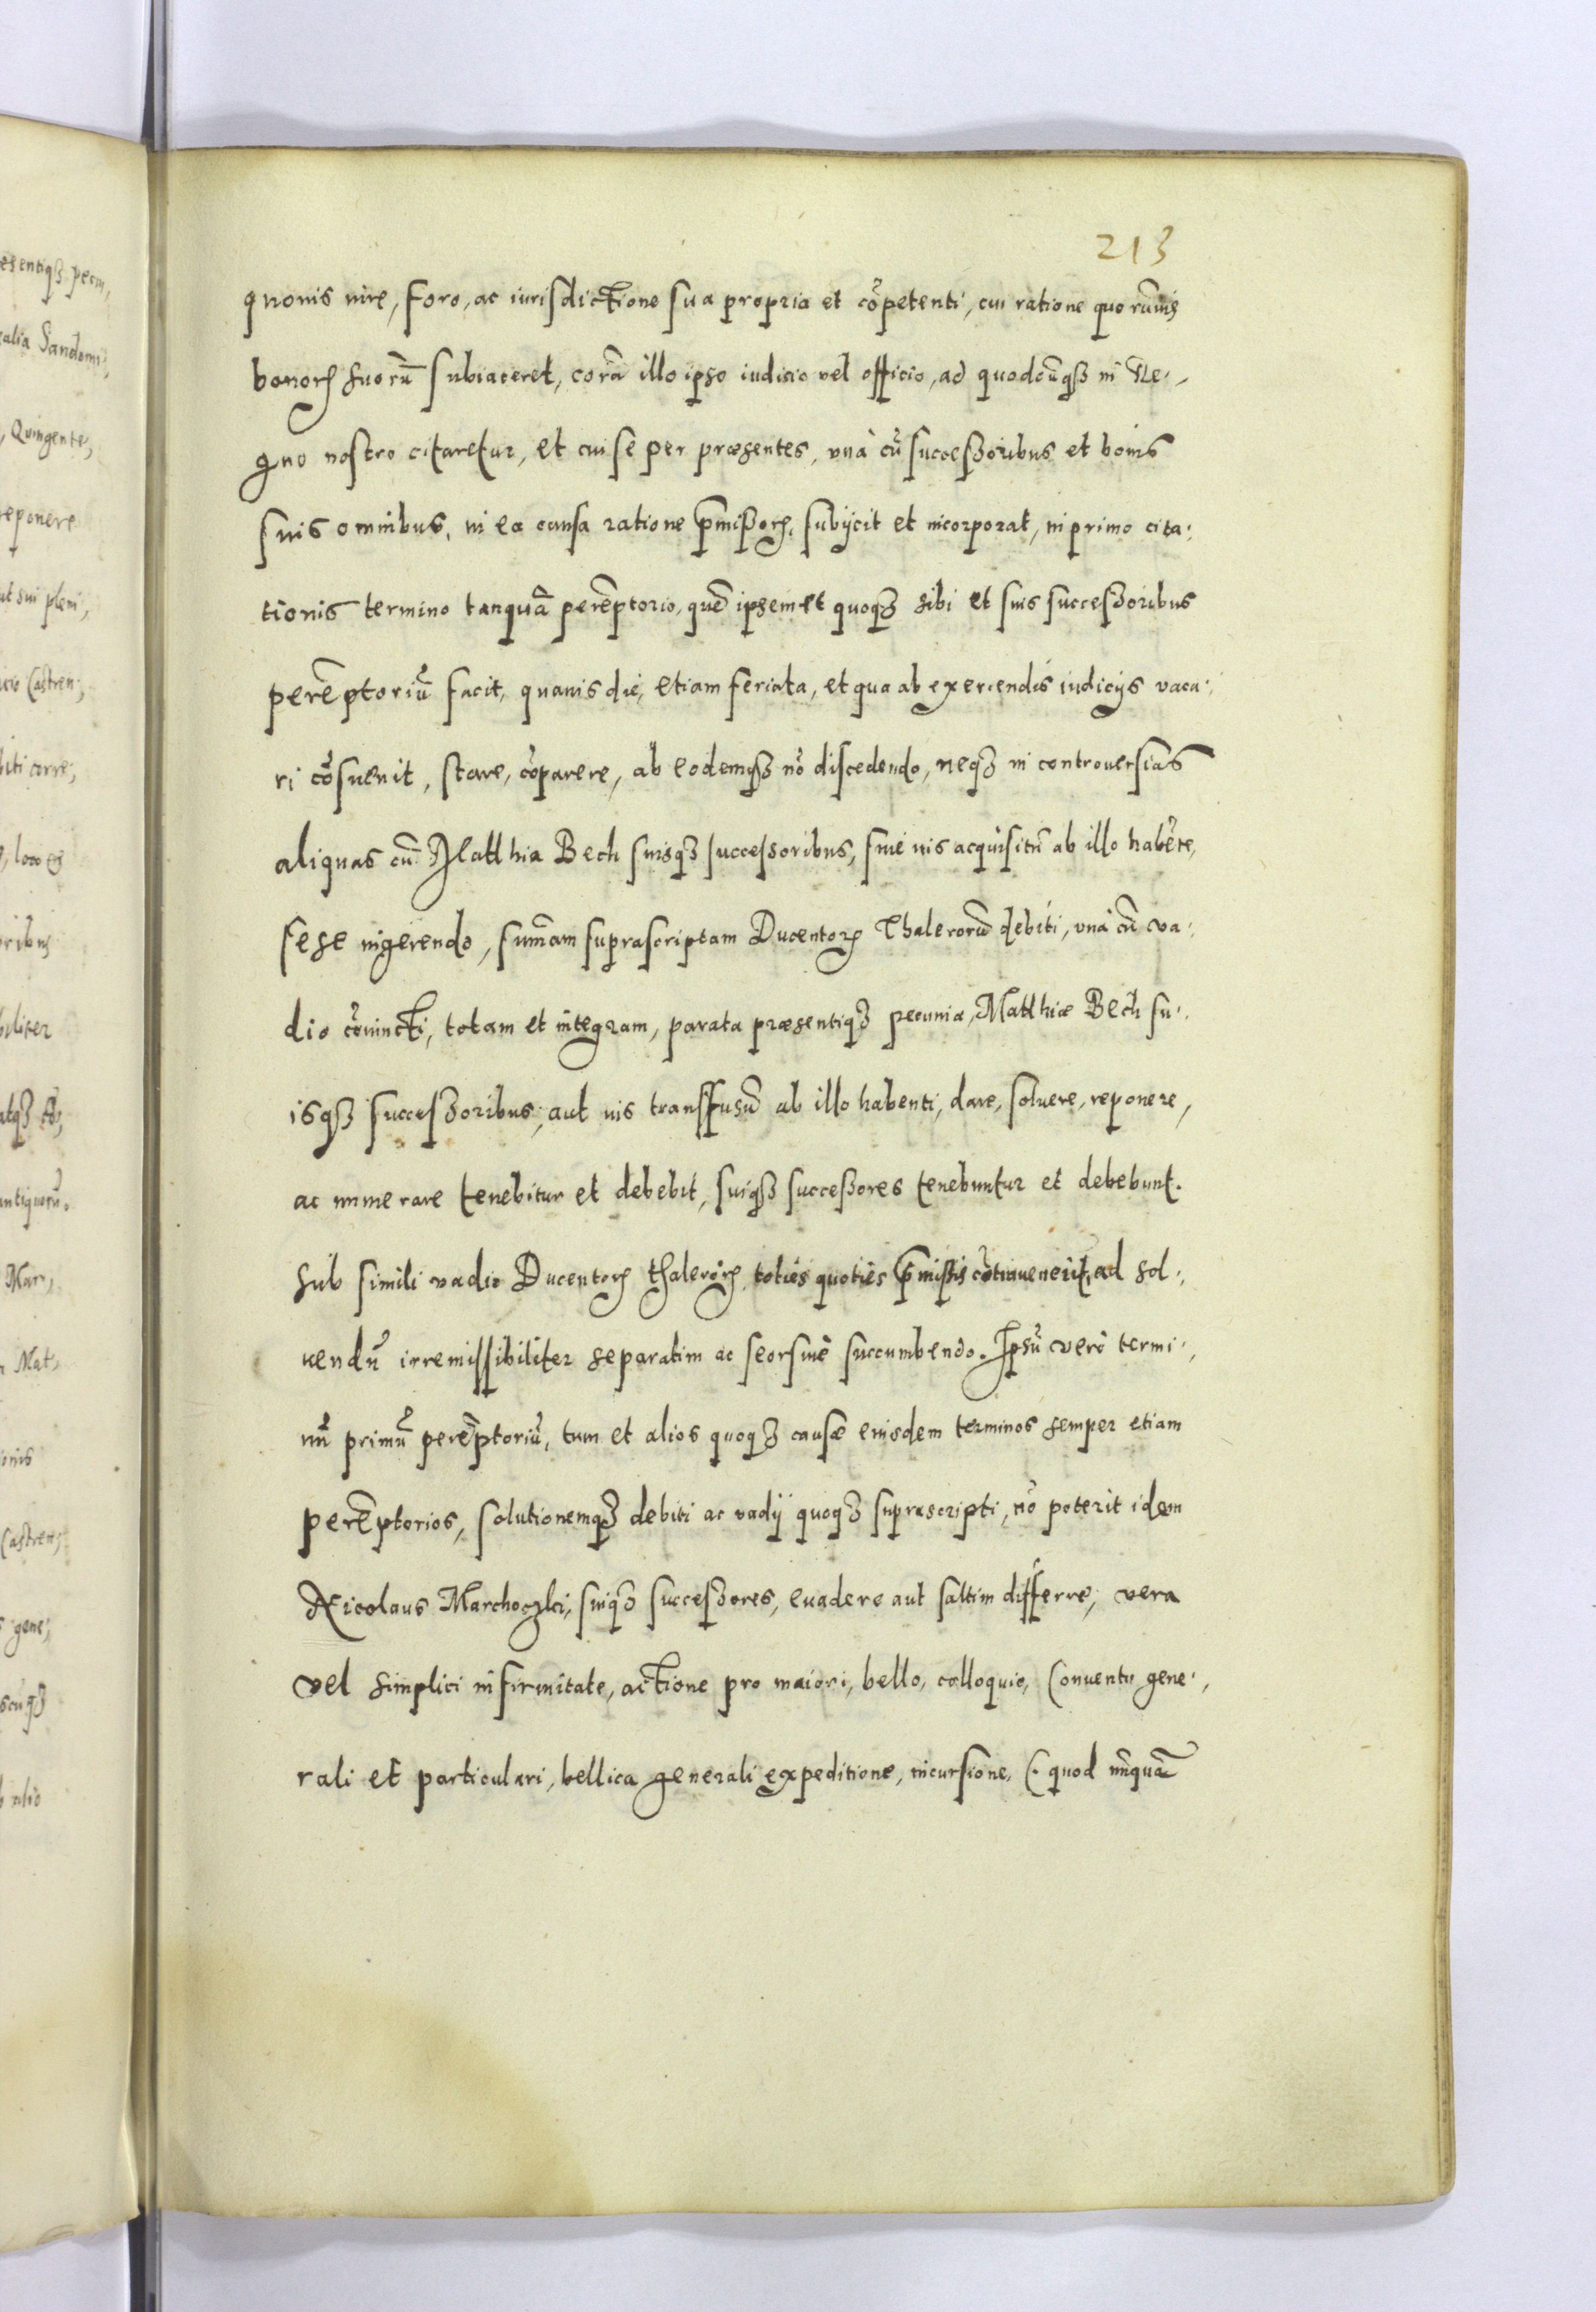 213
quouis iure, foro, ac iurisdictione sua propria et cõpetenti, cui ratione quorũuis
bonorꝝ suorũ subiaceret, corã illo ipso iudicio vel officio, ad quodcũqꝫ in Re-
gno nostro citaretur, et cui se per præsentes, vnà cũ successoribus et bonis
suis omnibus, in ea causa ratione p̄missorꝝ, subijcit et incorporat, in primo cita-
tionis termino tanquã perẽptorio, quẽ ipsemet quoqꝫ sibi et suis successoribus
perẽptoriũ facit, quauis die, etiam feriata, et qua ab exercendis iudicijs vaca-
ri cõsueuit, stare, cõparere, ab eodemqꝫ nõ discedendo, neqꝫ in controuersias
aliquas cũ Matthia Bech suisqꝫ successoribus, siue ius acquisitũ ab illo habẽte,
sese ingerendo, sum̃am suprascriptam Ducentorꝝ Thalerorũ debiti, vnà cũ va-
dio cõuincti, totam et integram, parata præsentiqꝫ pecunia, Matthiæ Bech su-
isqꝫ successoribus, aut ius transfusũ ab illo habenti, dare, soluere, reponere,
ac numerare tenebitur et debebit, suiqꝫ successores tenebuntur et debebunt.
Sub simili vadio Ducentorꝝ thalerorꝝ, toties quoties p̄missis cõtrauenerit, ad sol-
uendũ irremissibiliter separatim ac seorsiuè succumbendo. Ipsũ verò termi-
nũ primũ perẽptoriũ, tum et alios quoqꝫ causæ eiusdem terminos semper etiam
perẽptorios, solutionemqꝫ debiti ac vadij quoqꝫ suprascripti, nõ poterit idem
Nicolaus Marchoczki, suiqꝫ successores, euadere aut saltim differre, vera
vel simplici infirmitate, actione pro maiori, bello, colloquio, Conuentu gene-
rali et particulari, bellica generali expeditione, incursione, (: quod nũquã